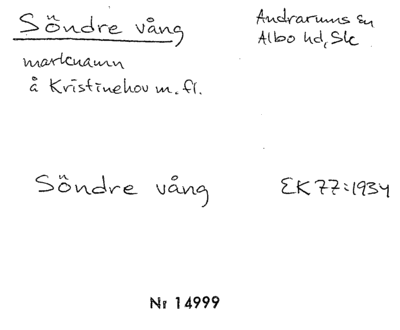 Söndre vång
Andrarums sn
Albo hd, Sk
marknamn
å Kristinehov m. fl.
Söndre vång
EK 77:1934
Nr 14999